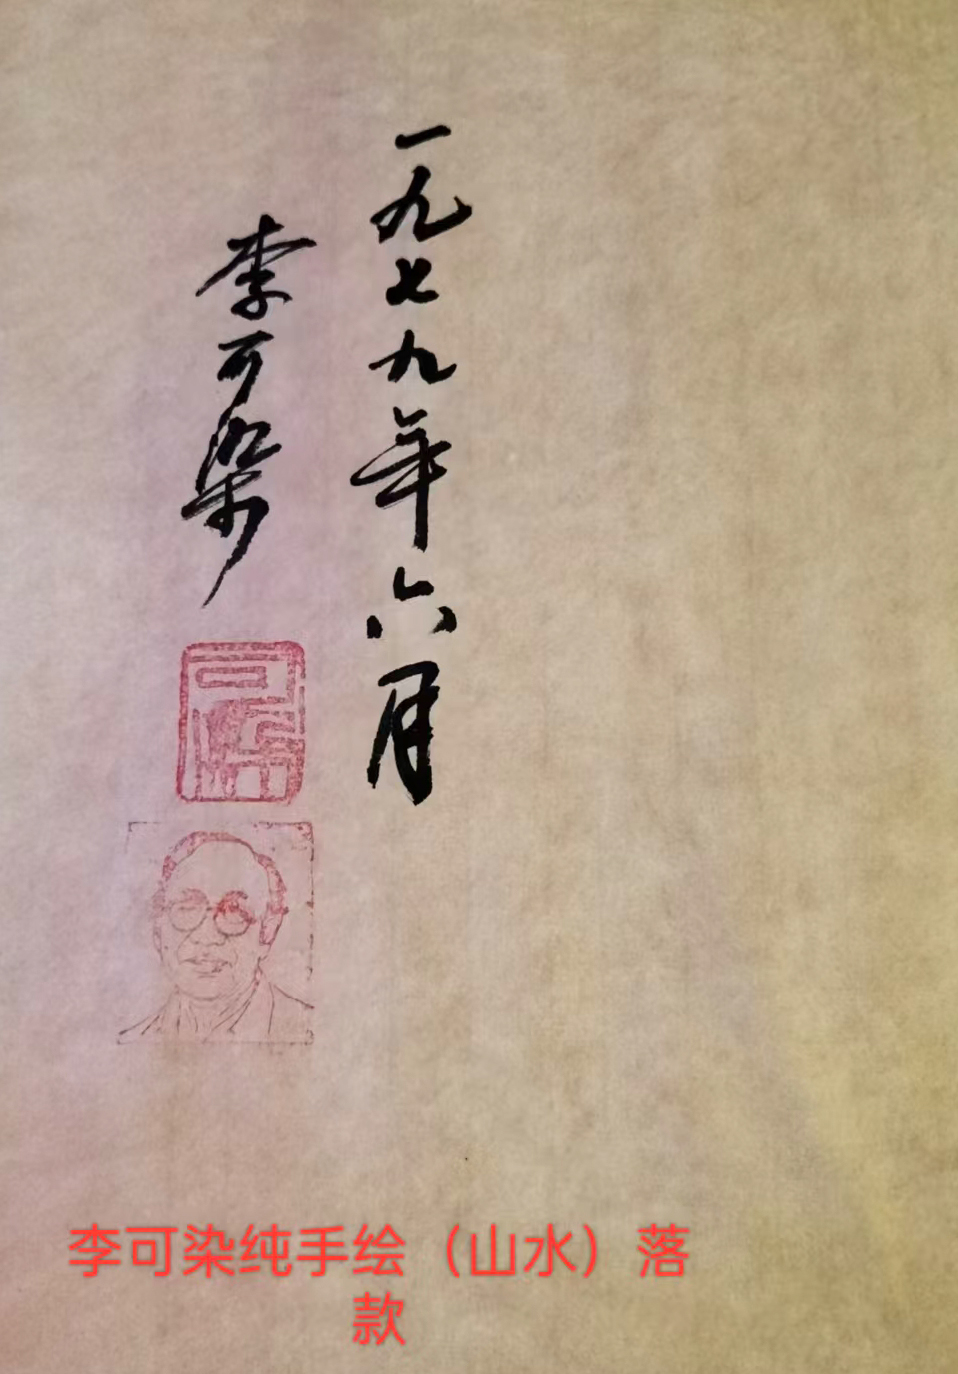 一九七九年六月
李可染
可染
李可染纯手绘（山水）落
款